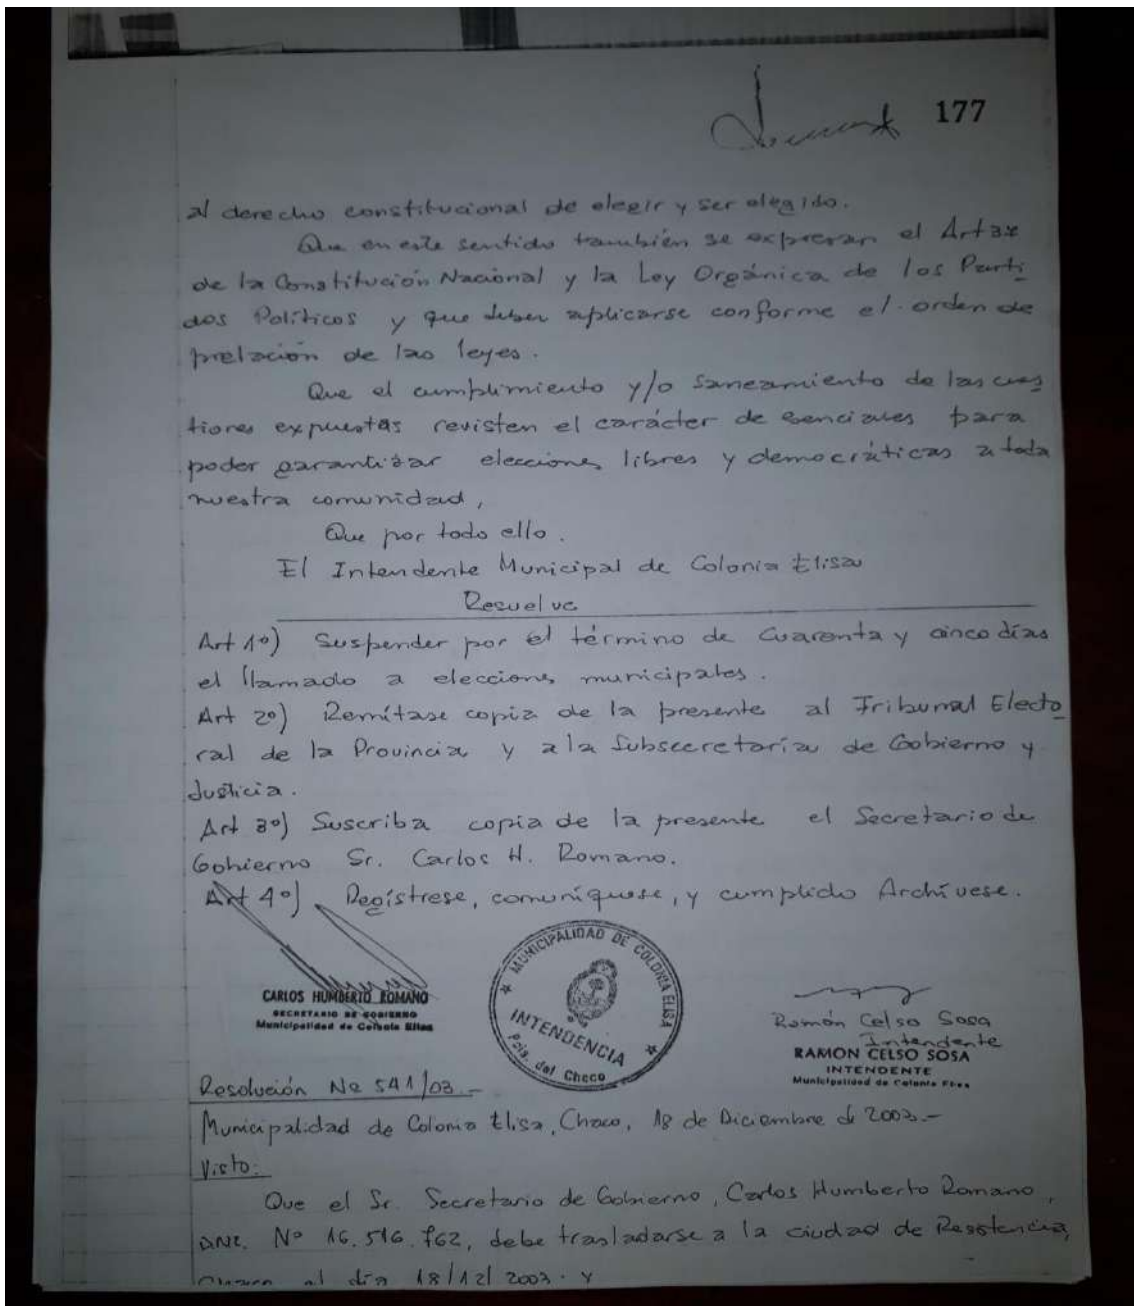 177
al derecho constitucional de elegir y ser elegido.
Que en este sentido también se expresan el Art
de la Constitución Nacional y la Ley Orgánica de los Parti
dos Políticos y que deben aplicarse conforme el orden de
prelación de las leyes.
Que el cumplimiento y/o saneamiento de las cues
tiones expuestas revisten el carácter de esenciales para
poder garantizar elecciones libres y democráticas a toda
nuestra comunidad,
Que por todo ello.
El Intendente Municipal de Colonia Elisa
Resuelve
Art 1º) Suspender por el término de Cuarenta y cinco días
el llamado a elecciones municipales.
Art 2º) Remítase copia de la presente al Tribunal Electo
ral de la Provincia y a la Subsecretaría de Gobierno y
Justicia.
Art 3º) Suscriba copia de la presente el Secretario de
Gobierno Sr. Carlos H. Romano.
Art 4º) Regístrese, comuníquese, y cumplido Archívese.
CARLOS HUMBERTO ROMANO
SECRETARIO DE GOBIERNO
Municipalidad de Colonia Elisa
MUNICIPALIDAD DE COLONIA ELISA
INTENDENCIA
Pcia. del Chaco
Ramón Celso Sosa
Intendente
RAMON CELSO SOSA
INTENDENTE
Municipalidad de Colonia Elisa
Resolución Nº 541/03.-
Municipalidad de Colonia Elisa, Chaco, 18 de Diciembre de 2003.-
Visto:
Que el Sr. Secretario de Gobierno, Carlos Humberto Romano,
DNI. Nº 16.516.762, debe trasladarse a la ciudad de Resistencia,
Chaco el día 18/12/2003. y